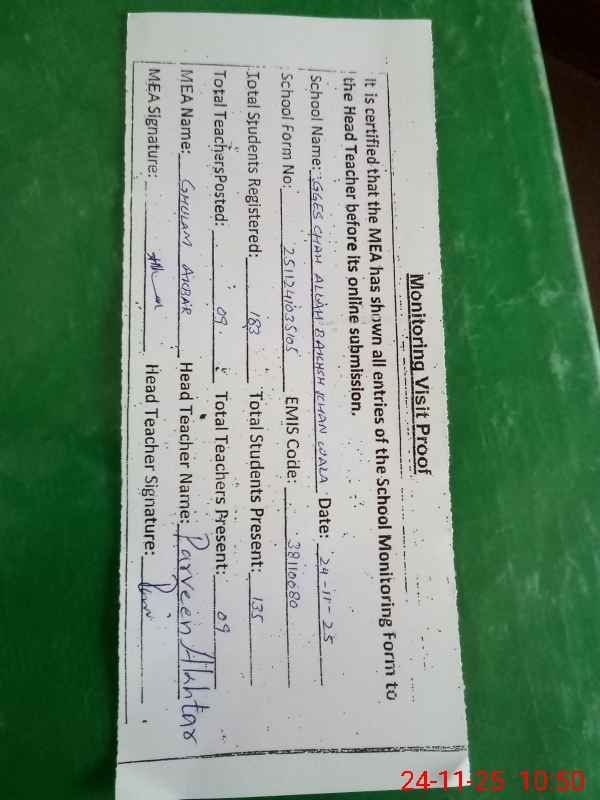 Monitoring Visit Proof
It is certified that the MEA has shown all entries of the School Monitoring Form to
the Head Teacher before its online submission.
School Name: GGES CHAH ALLAH BAKHSH KHAN WALA Date: 24-11-25
School Form No: 2511241035105 EMIS Code: 38110680
Total Students Registered: 183 Total Students Present: 135
Total TeachersPosted: 09 Total Teachers Present: 09
MEA Name: GHULAM AKBAR Head Teacher Name: Parveen Akhtar
MEA Signature: Head Teacher Signature:
24-11-25 10:50